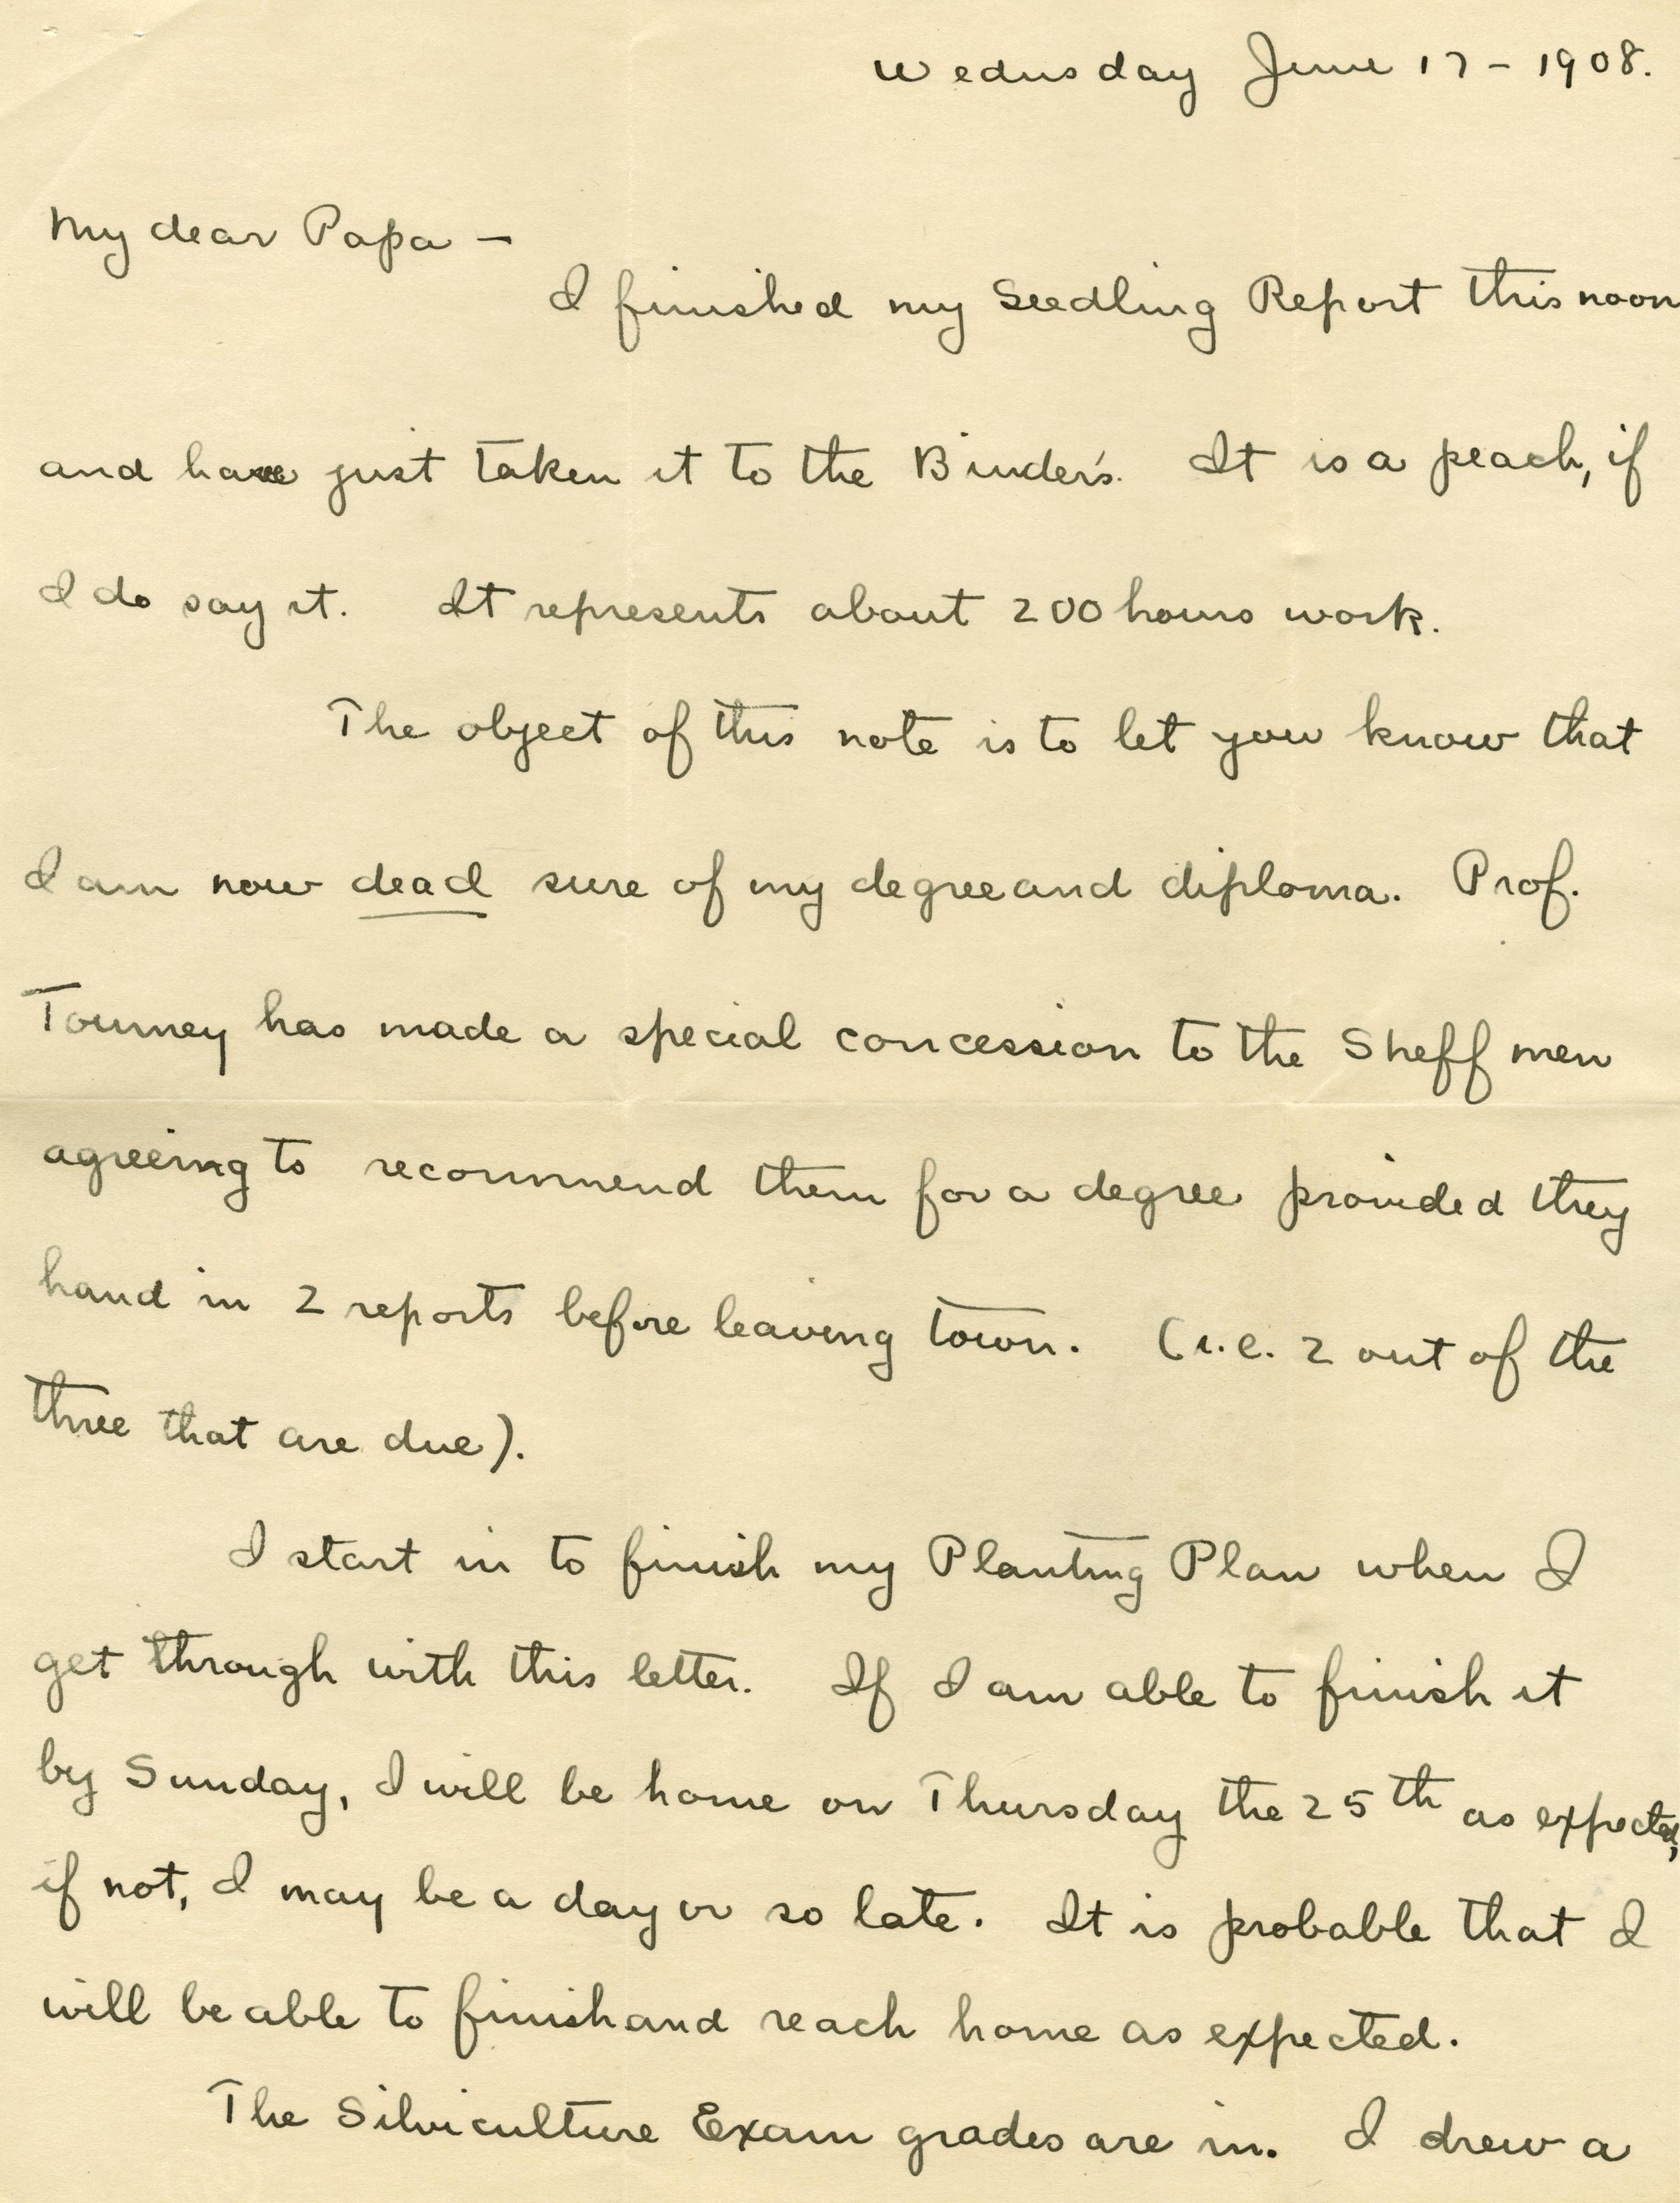 Wednsday June 17 - 1908.
My dear Papa -
I finished my Seedling Report this noon
and have just taken it to the Binder's. It is a peach, if
I do say it. It represents about 200 hours work.
The object of this note is to let you know that
I am now dead sure of my degree and diploma. Prof.
Toumey has made a special concession to the Sheff men
agreeing to recommend them for a degree provided they
hand in 2 reports before leaving town. (i.e. 2 out of the
three that are due).
I start in to finish my Planting Plan when I
get through with this letter. If I am able to finish it
by Sunday, I will be home on Thursday the 25th as expected,
if not, I may be a day or so late. It is probable that I
will be able to finish and reach home as expected.
The Silviculture Exam grades are in. I drew a